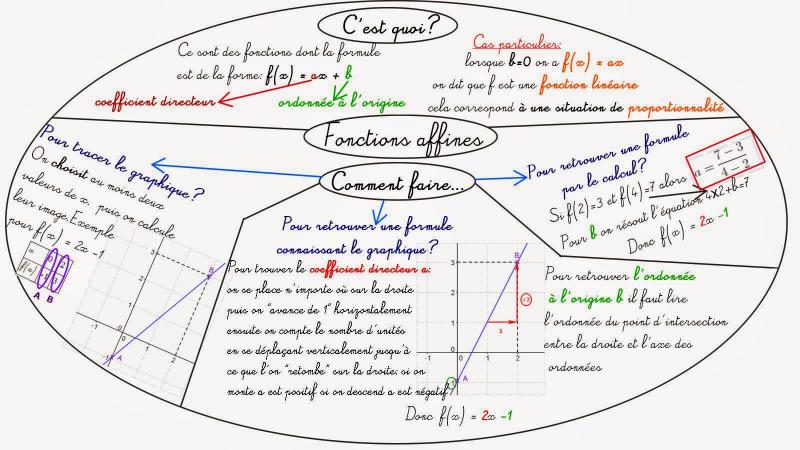 C'est quoi?
Ce sont des fonctions dont la formule
est de la forme: f(x) = ax + b
coefficient directeur
ordonnée à l'origine
Cas particulier:
lorsque b=0 on a f(x) = ax
on dit que f est une fonction linéaire
cela correspond à une situation de proportionnalité
Fonctions affines
Comment faire...
Pour tracer le graphique?
On choisit au moins deux
valeurs de x, puis on calcule
leur image. Exemple
pour f(x) = 2x -1
A B
-1 1 2
3
2
1
-1
A
B
Pour retrouver une formule
connaissant le graphique?
Pour trouver le coefficient directeur a:
on se place n'importe où sur la droite
puis on "avance de 1" horizontalement
ensuite on compte le nombre d'unités
en se déplaçant verticalement jusqu'à
ce que l'on "retombe" sur la droite: si on
monte a est positif si on descend a est négatif
3
2
1
-1 0 1 2
-1
A
B
1
+2
Donc f(x) = 2x -1
Pour retrouver l'ordonnée
à l'origine b il faut lire
l'ordonnée du point d'intersection
entre la droite et l'axe des
ordonnées
Pour retrouver une formule
par le calcul?
Si f(2)=3 et f(4)=7 alors
a = 7 − 3 / 4 − 2
Pour b on résout l'équation 4x2+b=7
Donc f(x) = 2x -1